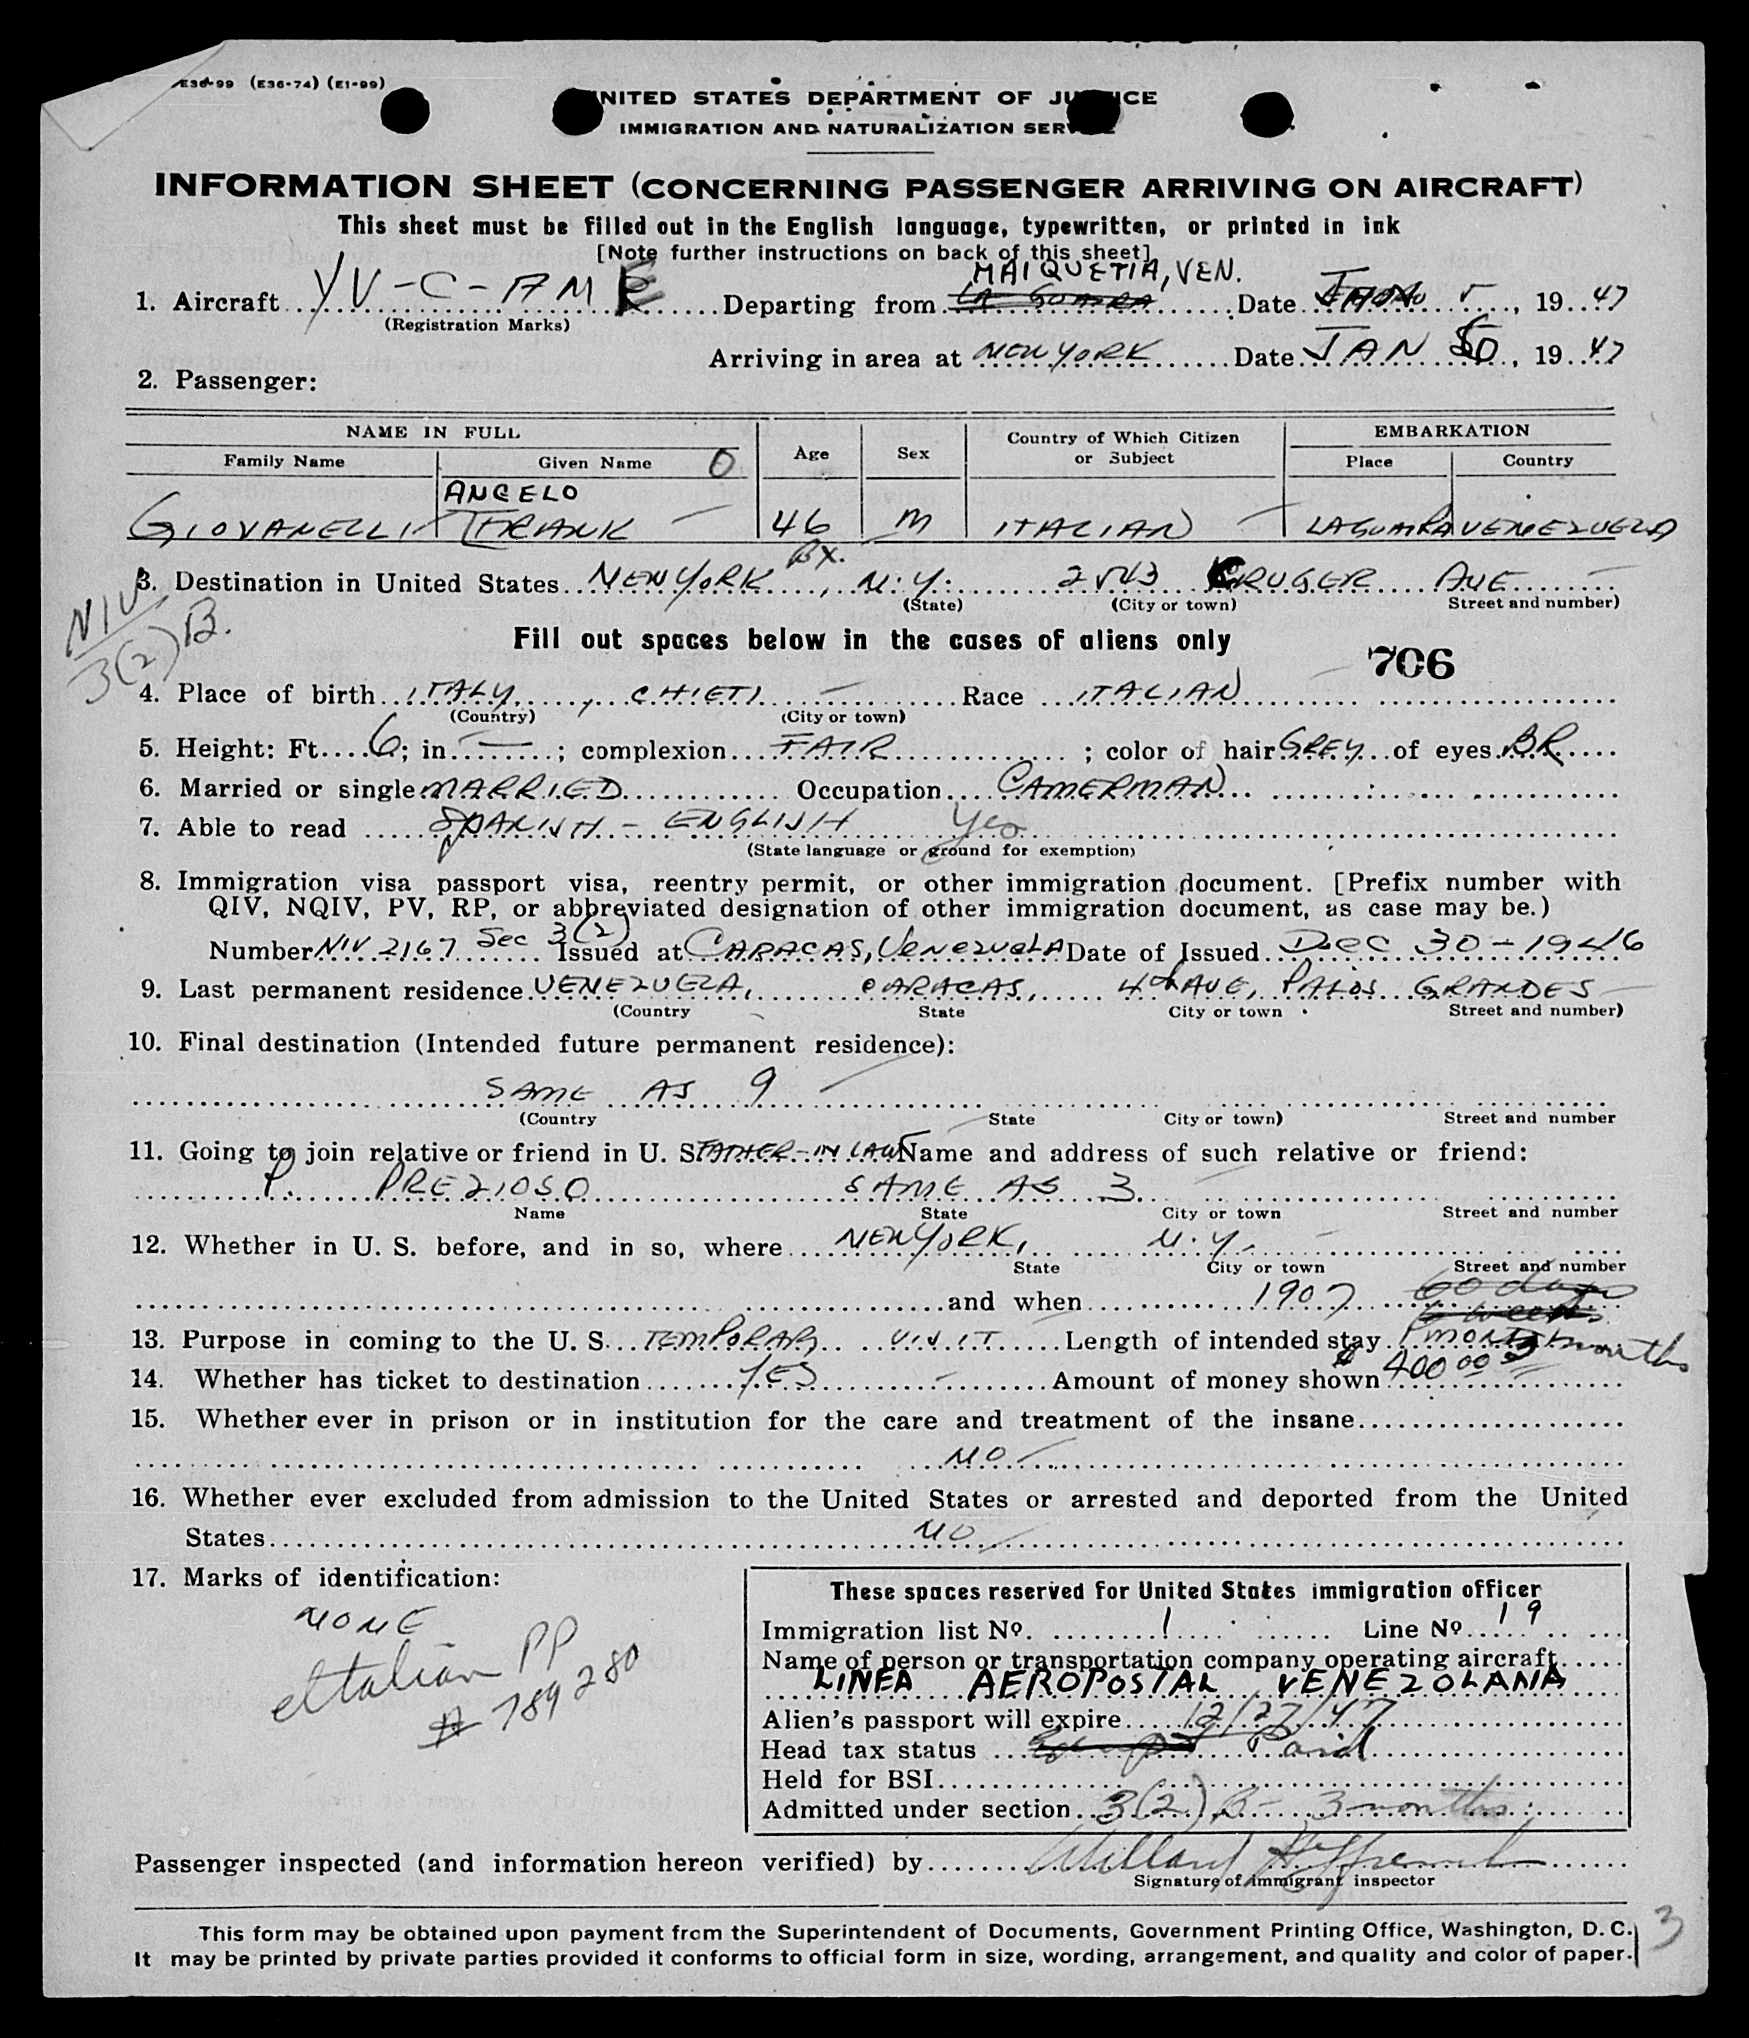 E36-99 (E36-74) (E1-99)
UNITED STATES DEPARTMENT OF JUSTICE
IMMIGRATION AND NATURALIZATION SERVICE
INFORMATION SHEET (CONCERNING PASSENGER ARRIVING ON AIRCRAFT)
This sheet must be filled out in the English language, typewritten, or printed in ink
[Note further instructions on back of this sheet]
MAIQUETIA, VEN.
1. Aircraft YV-C-AME Departing from LA GUAIRA Date JAN 5, 1947
(Registration Marks)
Arriving in area at NEW YORK Date JAN 1947
2. Passenger:
NAME IN FULL Age Sex Country of Which Citizen or Subject EMBARKATION
Family Name Given Name O Place Country
ANGELO
GIOVANELLI FRANK 46 M ITALIAN LAGUAIRA VENEZUELA
BX.
3. Destination in United States NEW YORK, N.Y. 2543 KRUGER AVE
(State) (City or town) Street and number)
NIV
3(2)B.
Fill out spaces below in the cases of aliens only
706
4. Place of birth ITALY, CHIETI Race ITALIAN
(Country) (City or town)
5. Height: Ft. 6; in. —; complexion FAIR; color of hair GREY of eyes BR
6. Married or single MARRIED Occupation CAMERMAN
7. Able to read SPANISH - ENGLISH Yes
(State language or ground for exemption)
8. Immigration visa passport visa, reentry permit, or other immigration document. [Prefix number with
QIV, NQIV, PV, RP, or abbreviated designation of other immigration document, as case may be.)
Number NIV 2167 Sec 3(2) Issued at CARACAS, VENEZUELA Date of Issued Dec 30-1946
9. Last permanent residence VENEZUELA, CARACAS, 4th AVE, PALOS GRANDES
(Country State City or town Street and number)
10. Final destination (Intended future permanent residence):
SAME AS 9
(Country State City or town) Street and number
11. Going to join relative or friend in U. S. FATHER-IN LAW Name and address of such relative or friend:
P. PREZIOSO SAME AS 3
Name State City or town Street and number
12. Whether in U. S. before, and in so, where NEW YORK, N.Y.
State City or town Street and number
and when 1907 60 days
6 weeks
13. Purpose in coming to the U. S. TEMPORARY VISIT Length of intended stay 3 months
14. Whether has ticket to destination YES Amount of money shown $400 00
15. Whether ever in prison or in institution for the care and treatment of the insane
NO
16. Whether ever excluded from admission to the United States or arrested and deported from the United
States NO
17. Marks of identification:
NONE
Italian PP
# 789280
These spaces reserved for United States immigration officer
Immigration list No. 1 Line No. 19
Name of person or transportation company operating aircraft
LINEA AEROPOSTAL VENEZOLANA
Alien's passport will expire 12/27/47
Head tax status paid
Held for BSI
Admitted under section 3(2)B- 3 months
Passenger inspected (and information hereon verified) by Willard
Signature of immigrant inspector
This form may be obtained upon payment from the Superintendent of Documents, Government Printing Office, Washington, D. C.
It may be printed by private parties provided it conforms to official form in size, wording, arrangement, and quality and color of paper.
3